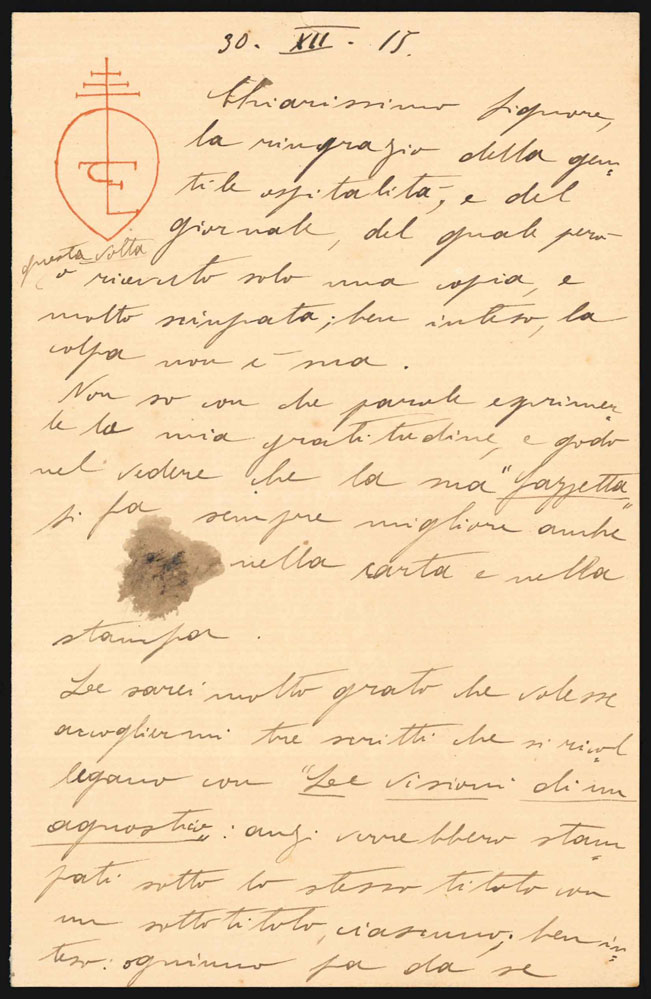 30. XII. 15.
Chiarissimo Signore,
la ringrazio della gen-
tile ospitalità, e del
giornale, del quale però
questa volta
ò ricevuto solo una copia, e
molto sciupata; ben inteso, la
colpa non è sua.
Non so con che parole esprimer-
le la mia gratitudine, e godo
nel vedere che la sua "Gazzetta"
si fa sempre migliore anche
nella carta e nella
stampa.
Le sarei molto grato che volesse
accogliermi tre scritti che si ricol
legano con "Le visioni di un
agnostico": anzi verrebbero stam
pati sotto lo stesso titolo con
un sottotitolo, ciascuno; ben in-
teso: ognuno fa da se